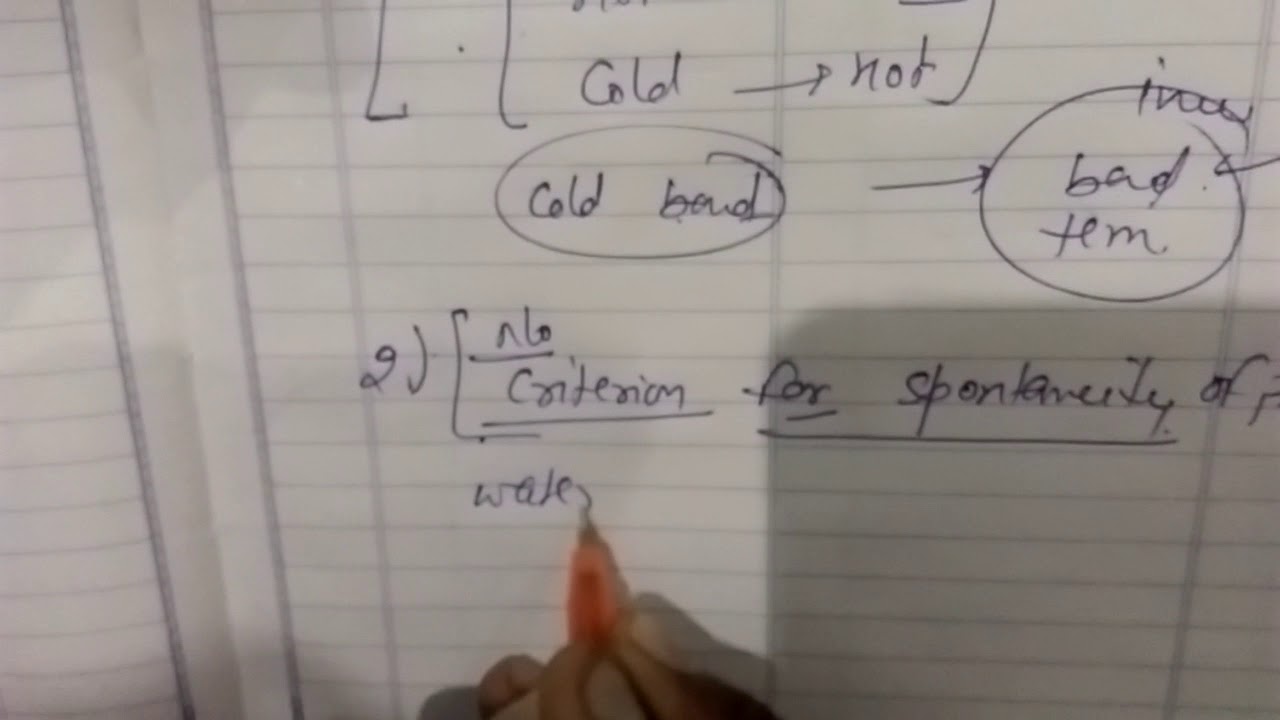 Cold → hot
inva
Cold bond → bad
tem
2) No
Criterion for spontaneity of
water